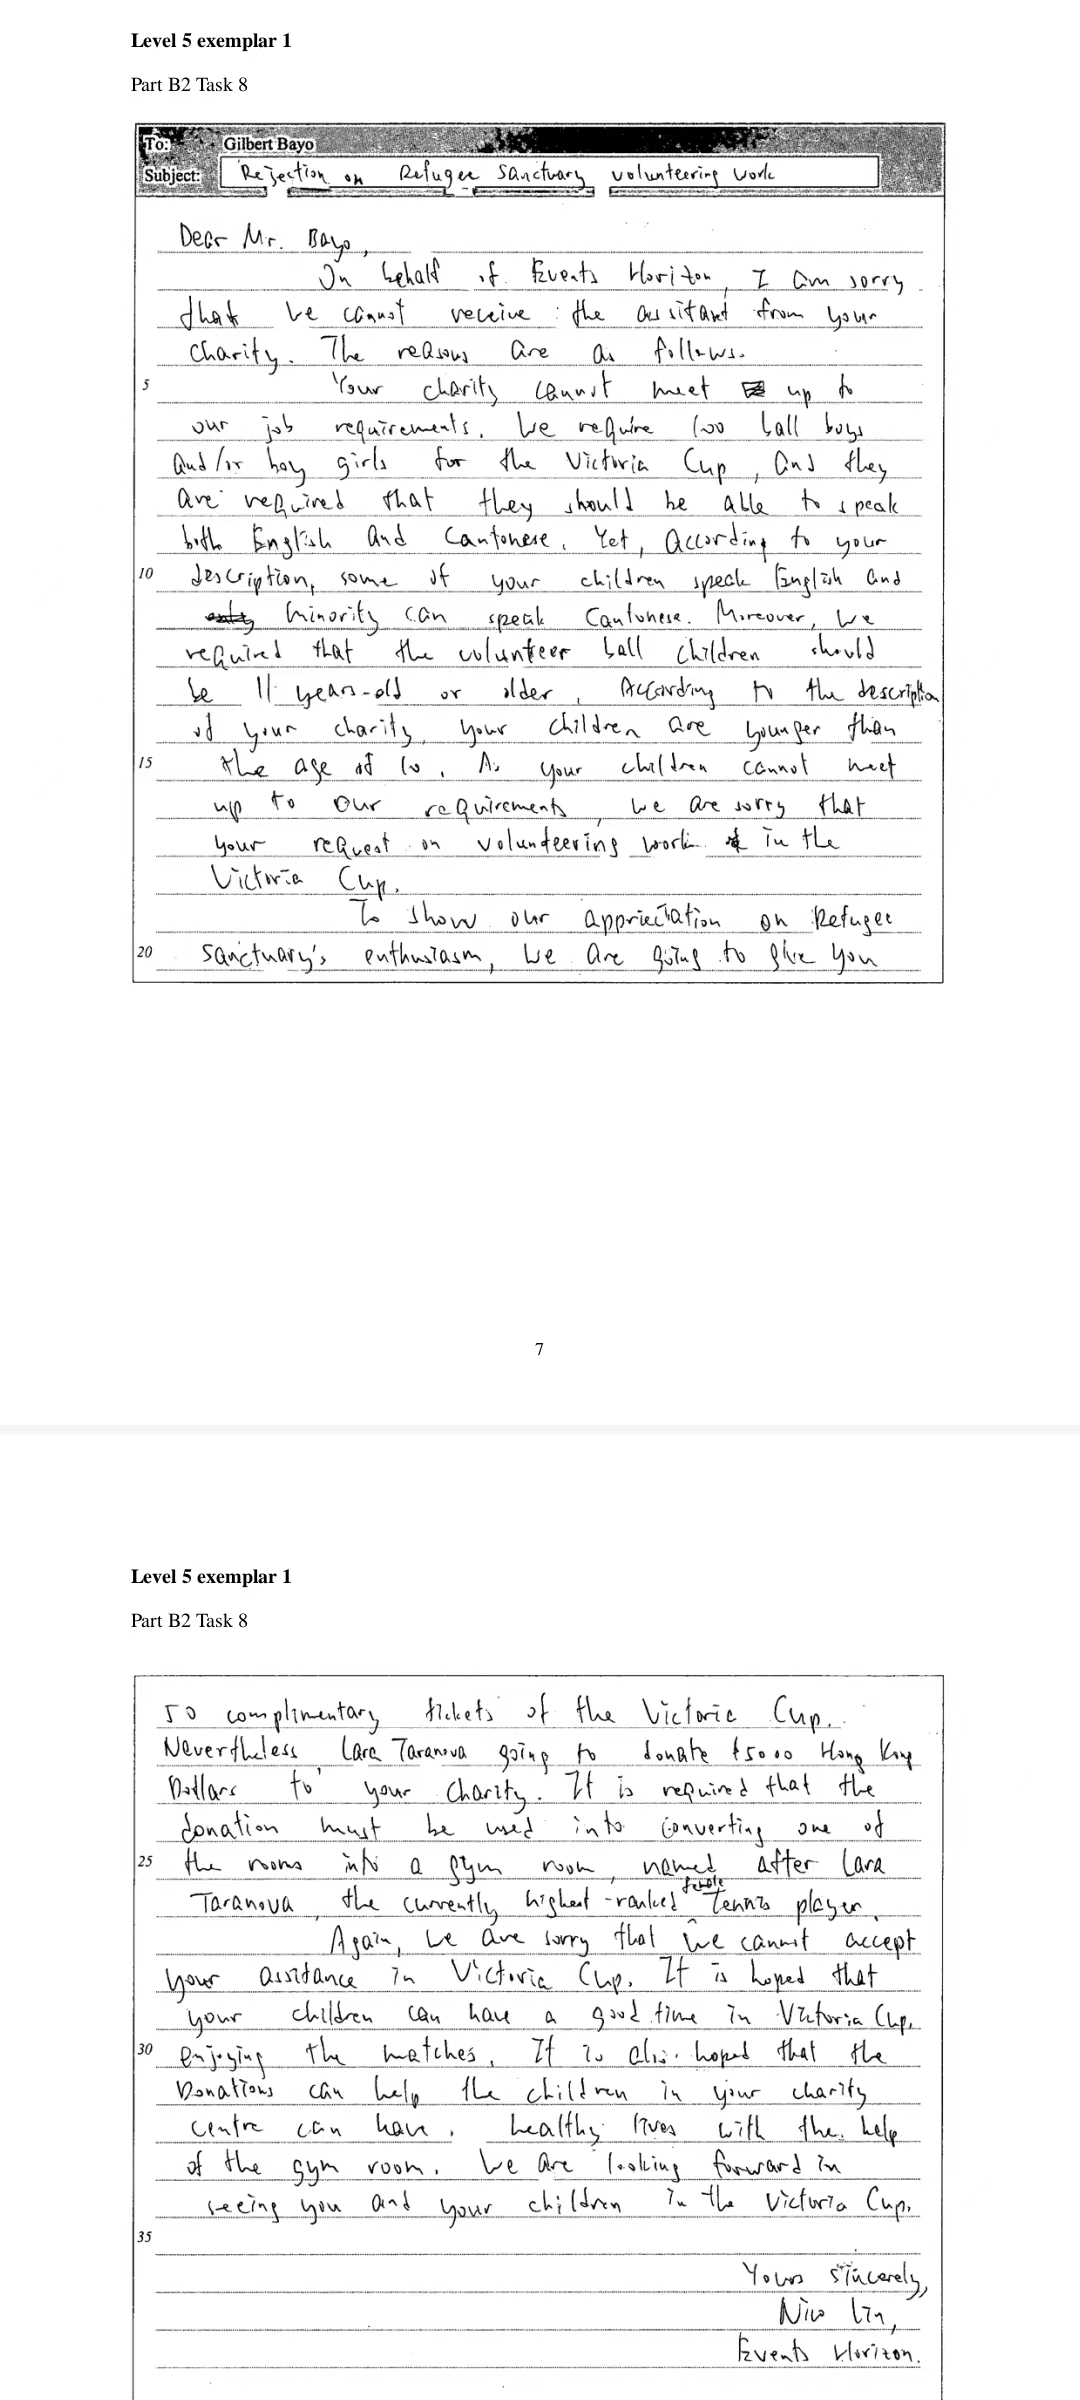 Level 5 exemplar 1
Part B2 Task 8
To: Gilbert Bayo
Subject: Rejection on Refugee Sanctuary volunteering work
Dear Mr. Bayo,
On behalf of Events Horizon, I am sorry
that we cannot receive the assitant from your
charity. The reasons are as follows.
5 Your charity cannot meet up to
our job requirements. We require 100 ball boys
and/or boy girls for the Victoria Cup, and they
are required that they should be able to speak
both English and Cantonese. Yet, according to your
10 description, some of your children speak English and
minority can speak Cantonese. Moreover, we
required that the volunteer ball children should
be 11 years-old or older. According to the description
of your charity, your children are younger than
15 the age of 10. As your children cannot meet
up to our requirements, we are sorry that
your request on volunteering work in the
Victoria Cup.
To show our appriectation on Refugee
20 Sanctuary's enthusiasm, we are going to give you
7
Level 5 exemplar 1
Part B2 Task 8
50 complimentary tickets of the Victoria Cup.
Nevertheless Lara Taranova going to donate $5000 Hong Kong
Dollars to your charity. It is required that the
donation must be used into converting one of
25 the rooms into a gym room, named after Lara
Taranova, the currently highest-ranked female tennis player.
Again, we are sorry that we cannot accept
your assitance in Victoria Cup. It is hoped that
your children can have a good time in Victoria Cup,
30 enjoying the matches. It is also hoped that the
Donations can help the children in your charity
centre can have healthy lives with the help
of the gym room. We are looking forward in
seeing you and your children in the Victoria Cup.
35
Yours sincerely,
Nico Lin,
Events Horizon.